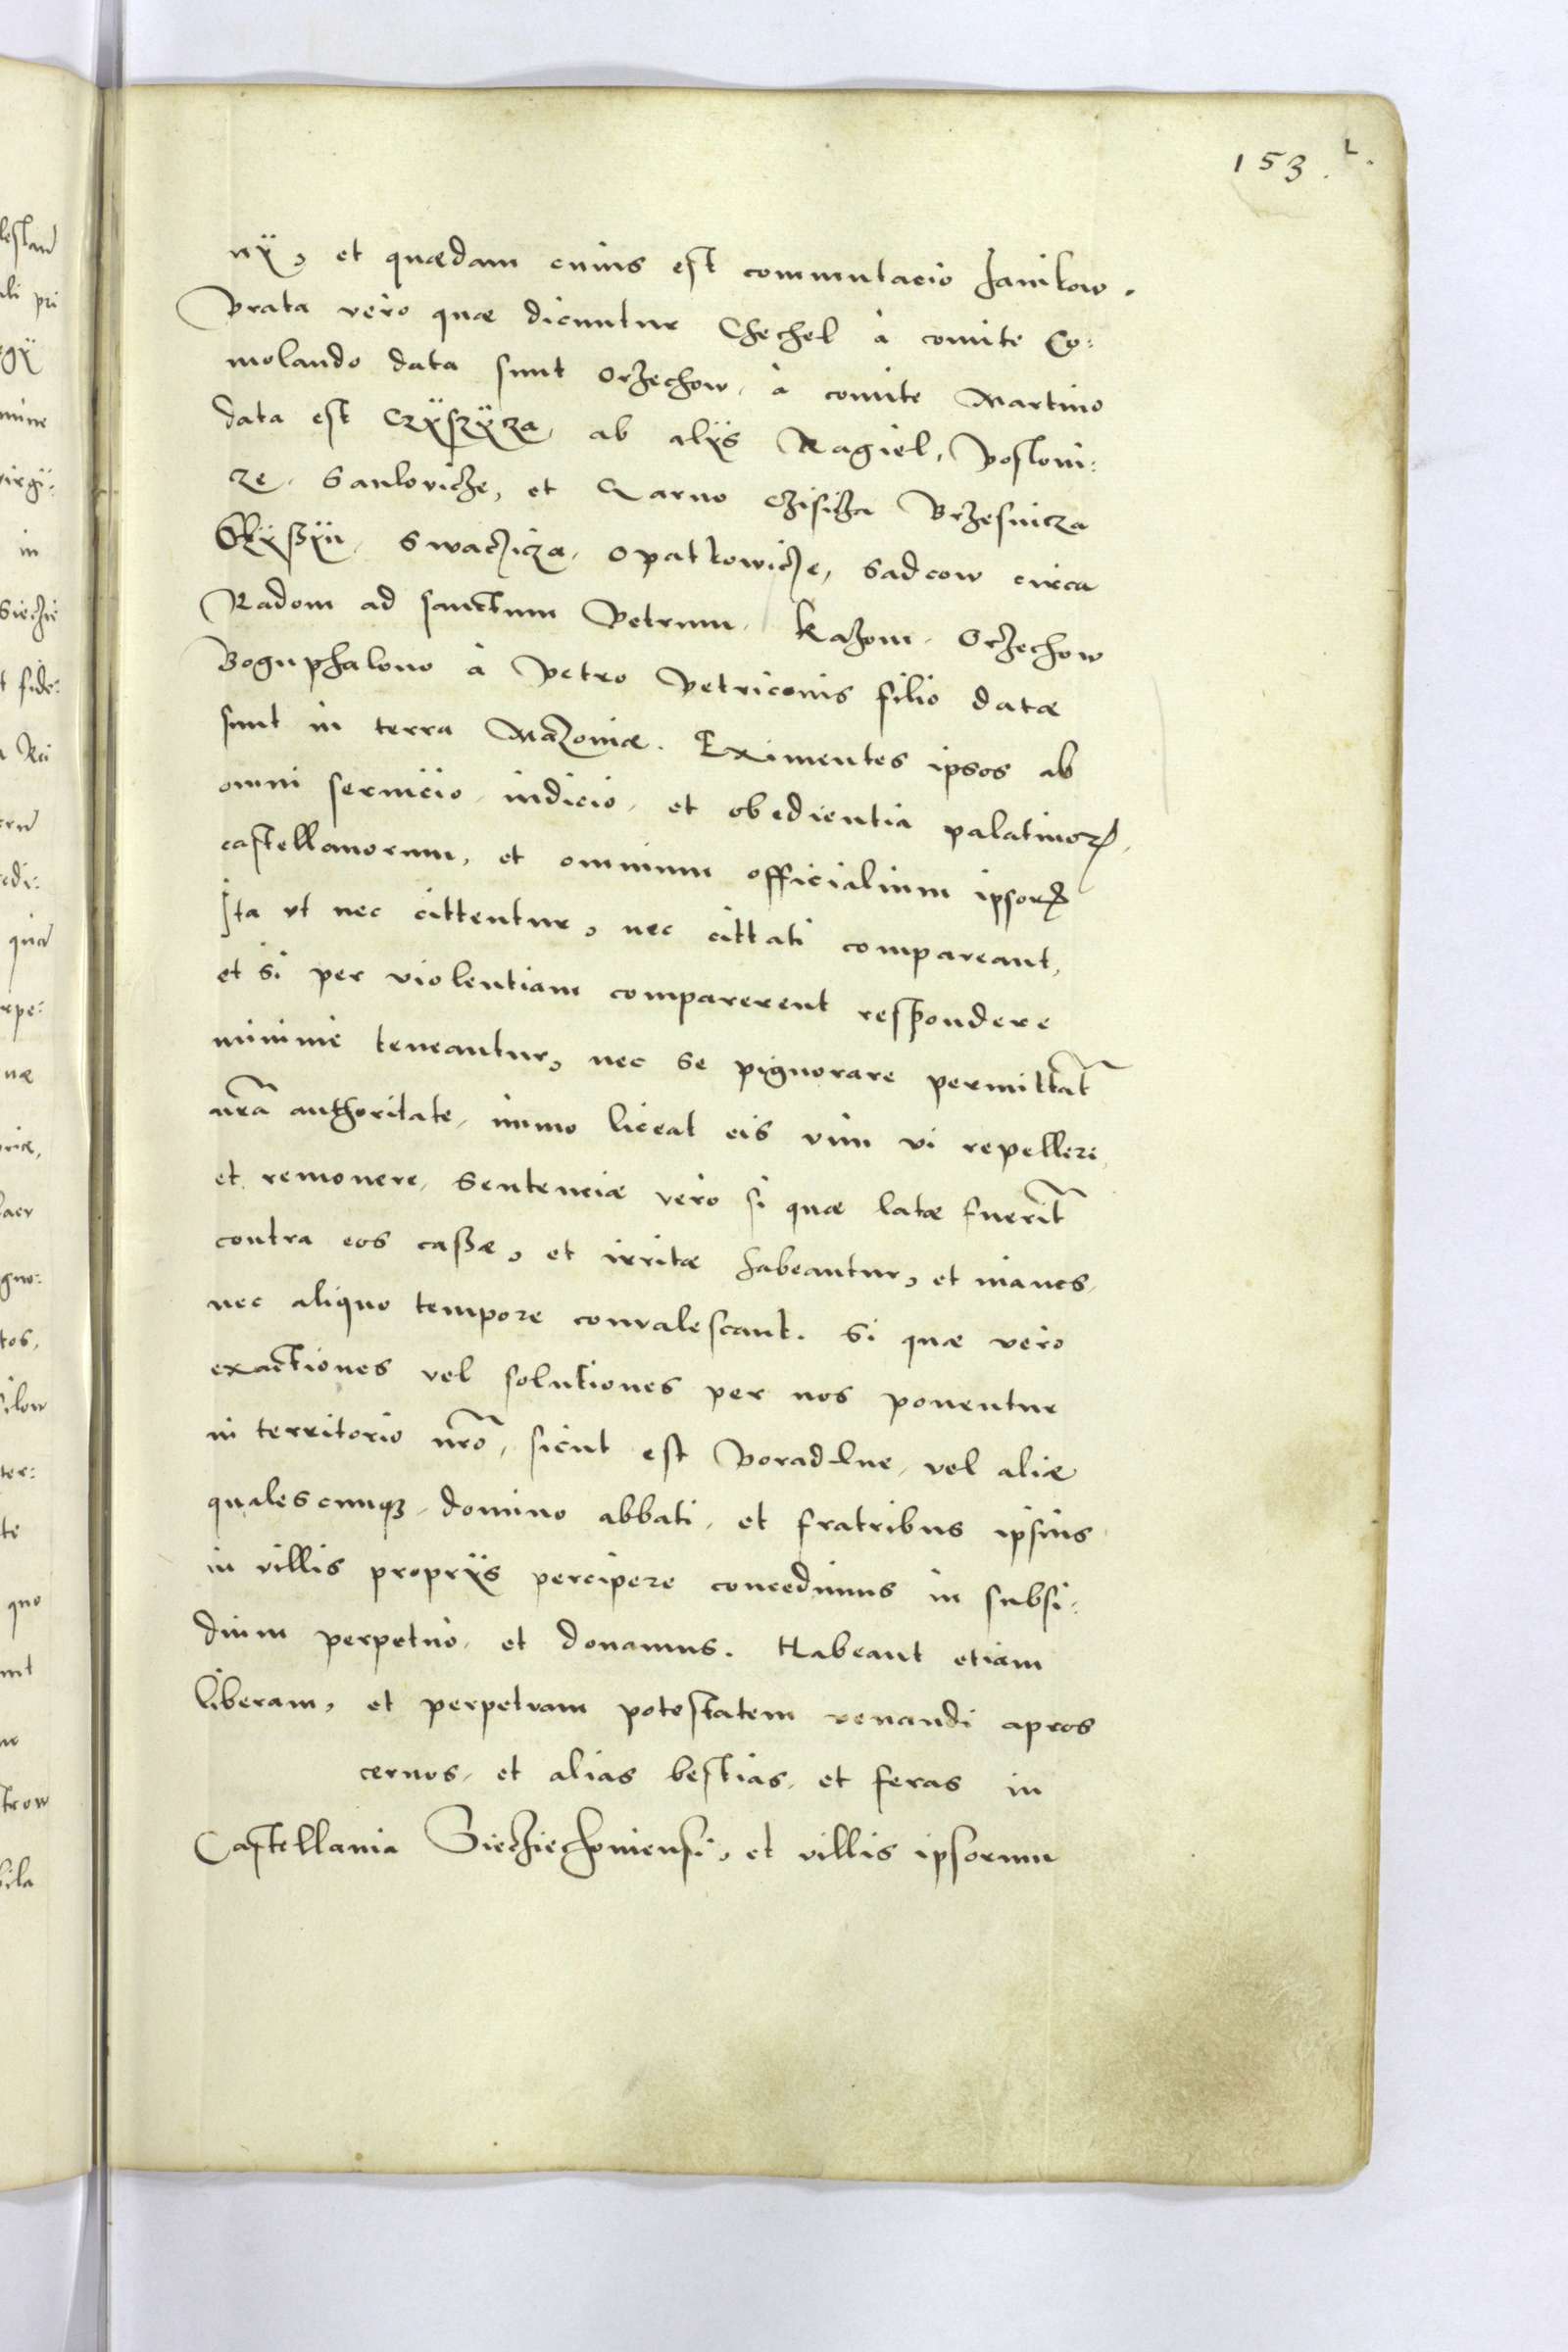 153. L.
nÿ, et quædam cuius est commutacio Janikow.
Prata vero quæ dicuntur Chechel à comite Co:
molando data sunt Orzechow, à comite Martino
data est Czÿszÿcza, ab alÿs Nagiel, Postoni:
cze, Saulovicze, et Czarno Czisicza Brzesnicza
Glÿssÿn, Swaczicza, Opatkowicze, Sadcow circa
Radom ad sanctum Petrum, Kazom, Orzechow
Boguphalono à Petro Petriconis filio datæ
sunt in terra Mazoniæ. Eximentes ipsos ab
omni seruicio, iudicio, et obedientia palatinorꝝ,
castellanorum, et omnium officialium ipsorꝝ
Ita vt nec cittentur, nec cittati compareant,
et si per violentiam comparerent respondere
minime teneantur, nec se pignorare permittãt
nrã authoritate, immo liceat eis vim vi repellere,
et remouere, Sentenciæ vero si quæ latæ fuerĩt
contra eos cassæ, et irritæ habeantur, et inanes,
nec aliquo tempore conualescant. Si quæ vero
exactiones vel solutiones per nos ponentur
in territorio nrõ, sicut est Poradlne, vel aliæ
qualescunqꝫ, domino abbati, et fratribus ipsius
in villis proprÿs percipere concedimus in subsi:
dium perpetuò, et donamus. Habeant etiam
liberam, et perpetuam potestatem venandi apros
ceruos, et alias bestias, et feras in
Castellania Sieciechouiensi, et villis ipsorum